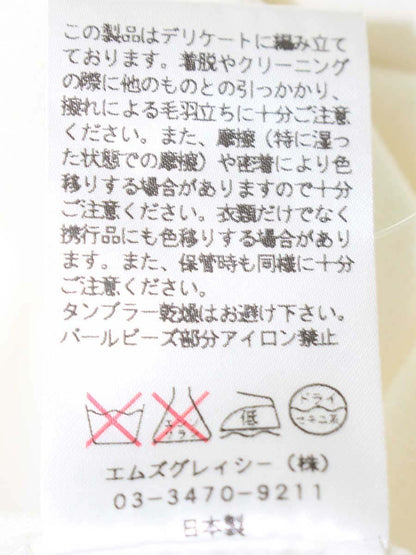 この製品はデリケートに編み立て
ております。着脱やクリーニング
の際に他のものとの引っかかり、
擦れによる毛羽立ちに十分ご注意
ください。また、摩擦（特に湿っ
た状態での摩擦）や密着により色
移りする場合がありますので十分
ご注意ください。衣類だけでなく
携行品にも色移りする場合があり
ます。また、保管時も同様に十分
ご注意ください。
タンブラー乾燥はお避け下さい。
パールビーズ部分アイロン禁止
エンソ サラシ 低 ドライ セキユ系
エムズグレイシー（株）
03-3470-9211
日本製